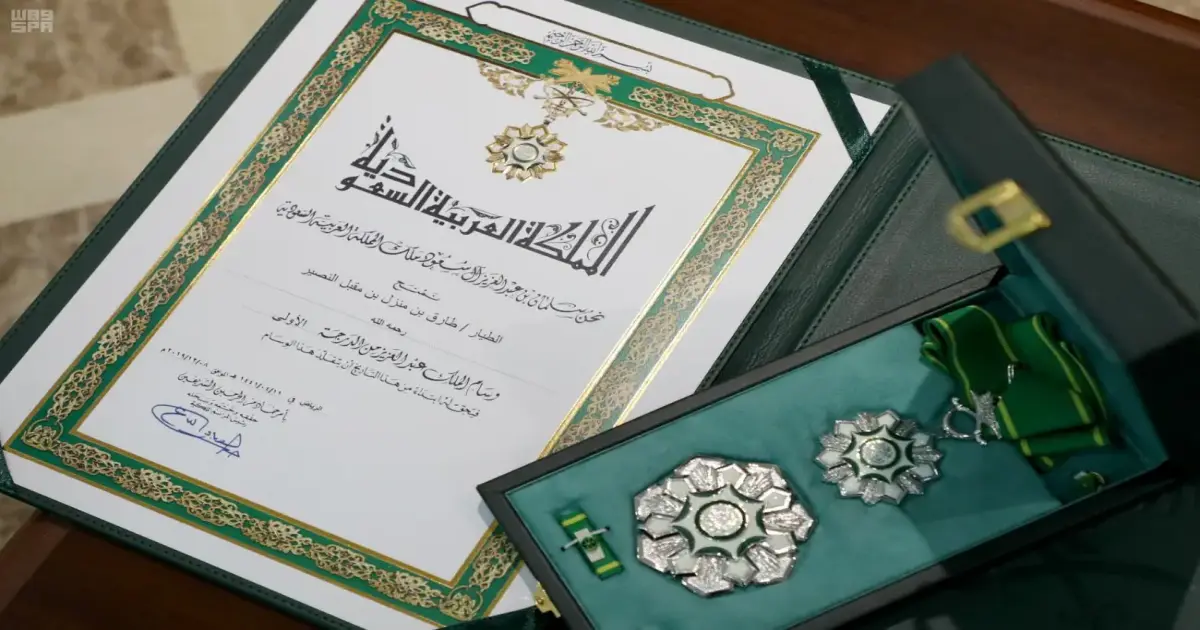 واس
SPA
بسم الله الرحمن الرحيم
المملكة العربية السعودية
نحن سلمان بن عبدالعزيز آل سعود ملك المملكة العربية السعودية
نمنح
الطيار / طارق بن منزل بن مقبل النصير
رحمه الله
وسام الملك عبدالعزيز من الدرجة الأولى
ويحق له ابتداء من هذا التاريخ أن يتقلد هذا الوسام
الرياض في
بأمر خادم الحرمين الشريفين